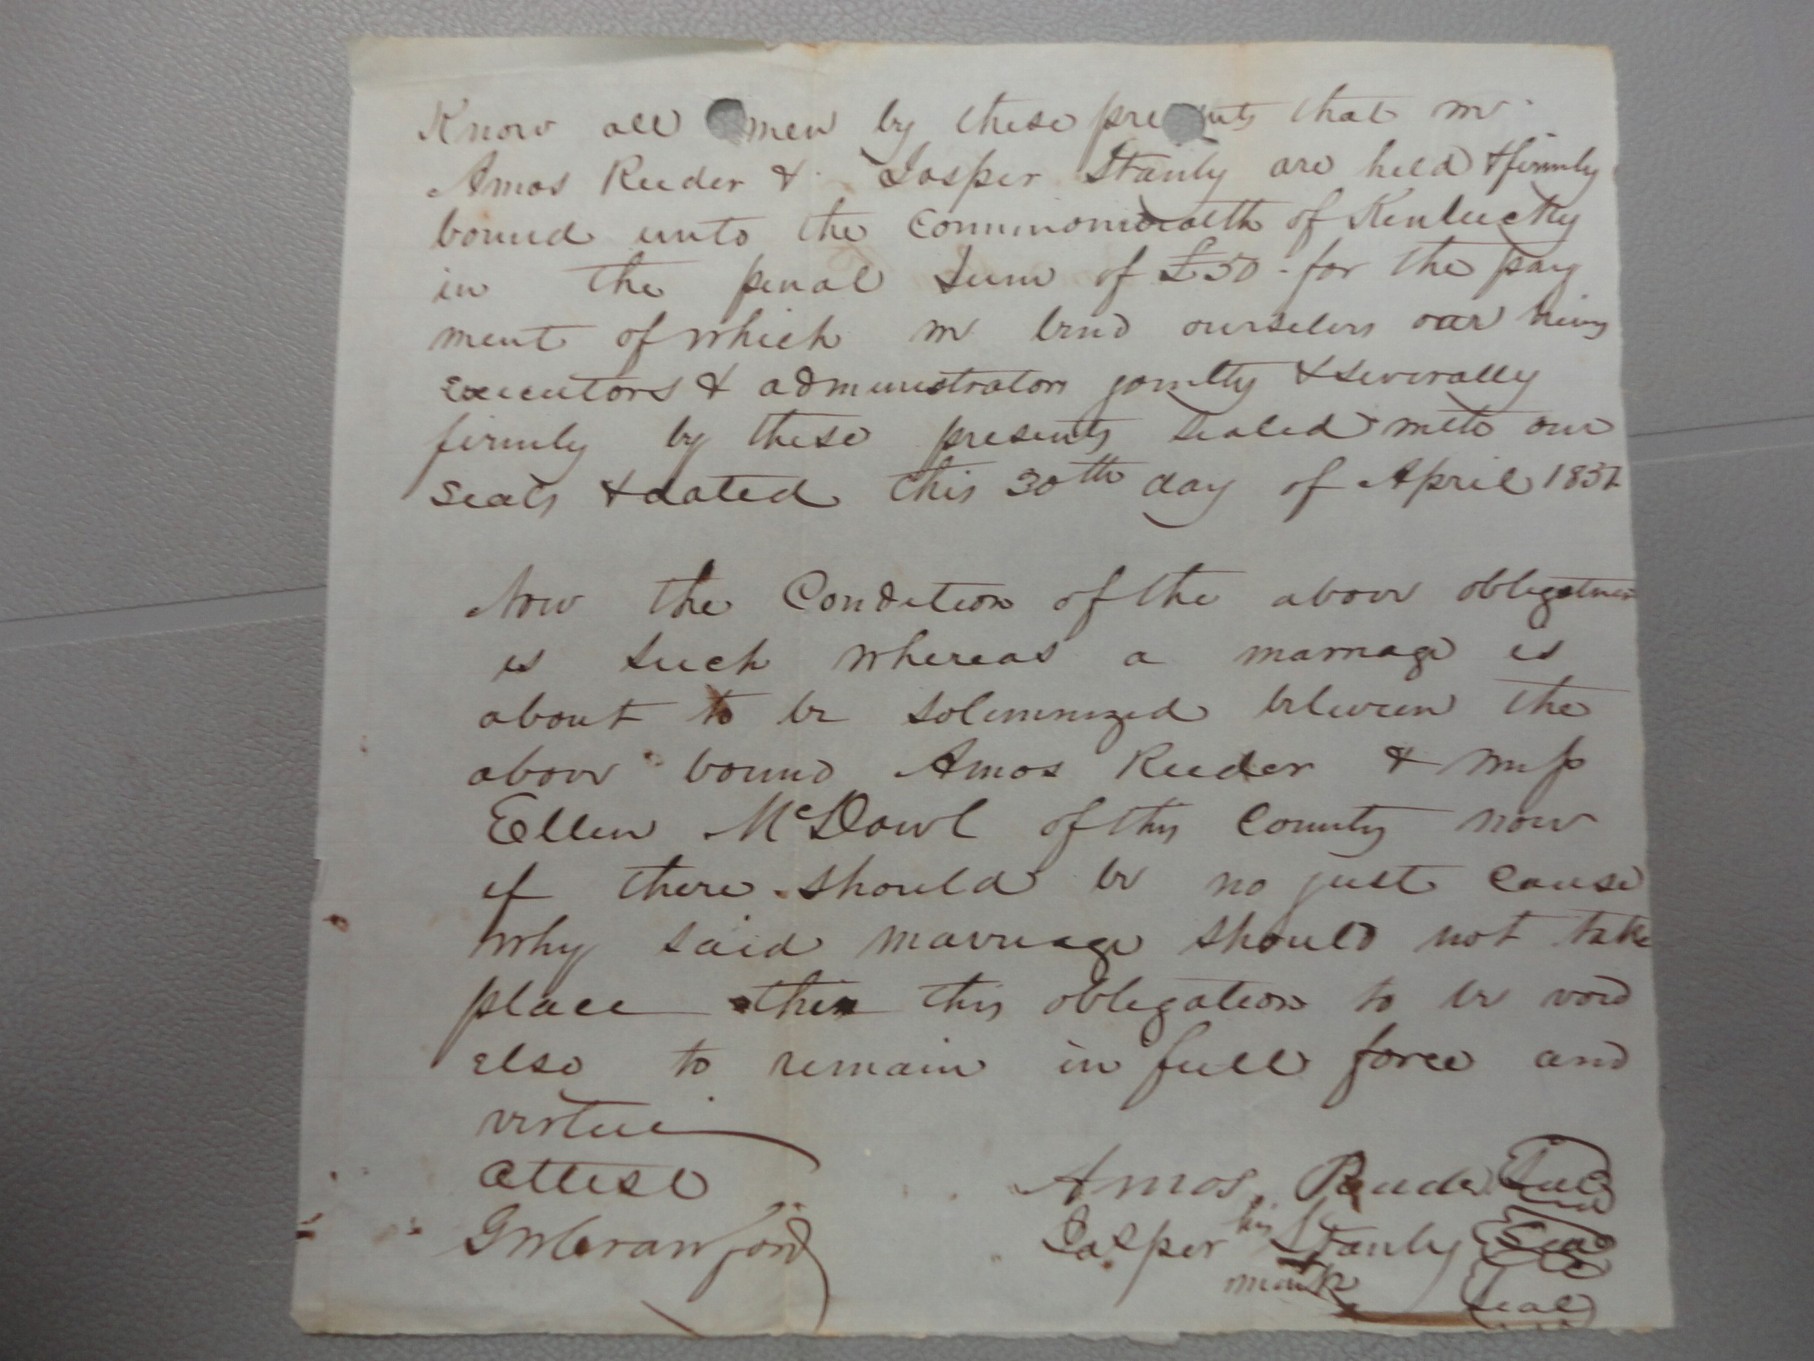 Know all men by these presents that we
Amos Reeder & Jasper Stanly are held & firmly
bound unto the Commonwealth of Kentucky
in the penal Sum of £50 - for the pay
ment of which we bind ourselves our heirs
executors & administrators jointly & severally
firmly by these presents sealed with our
seals & dated this 30th day of April 1852
Now the Condition of the above obligation
is such whereas a marriage is
about to be solemnized between the
above bound Amos Reeder & Miss
Ellen McDowl of this County now
if there should be no just cause
why said marriage should not take
place then this obligation to be void
else to remain in full force and
virtue
Attest Amos Reeder Seal
GW Crawford Jasper his Stanly Seal
mark Seal